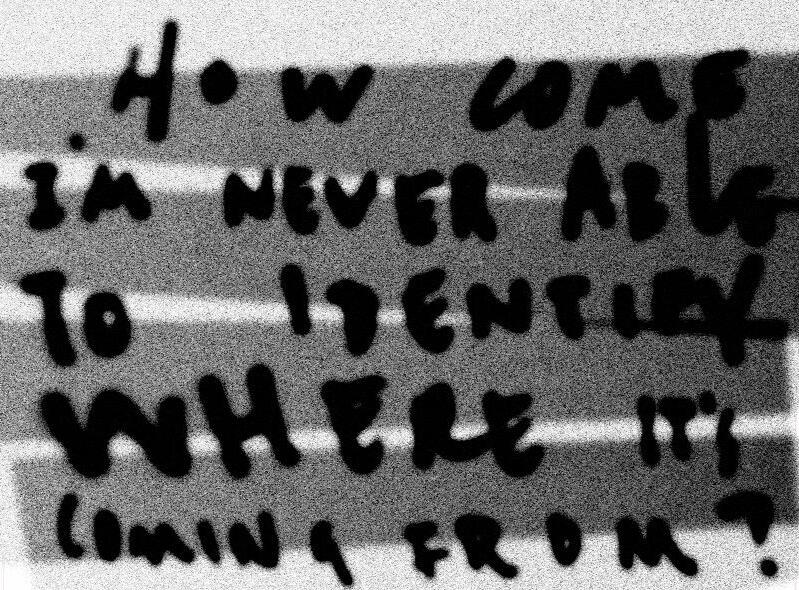 HOW COME
IM NEVER ABLE
TO IDENTIFY
WHERE IT'S
COMING FROM?